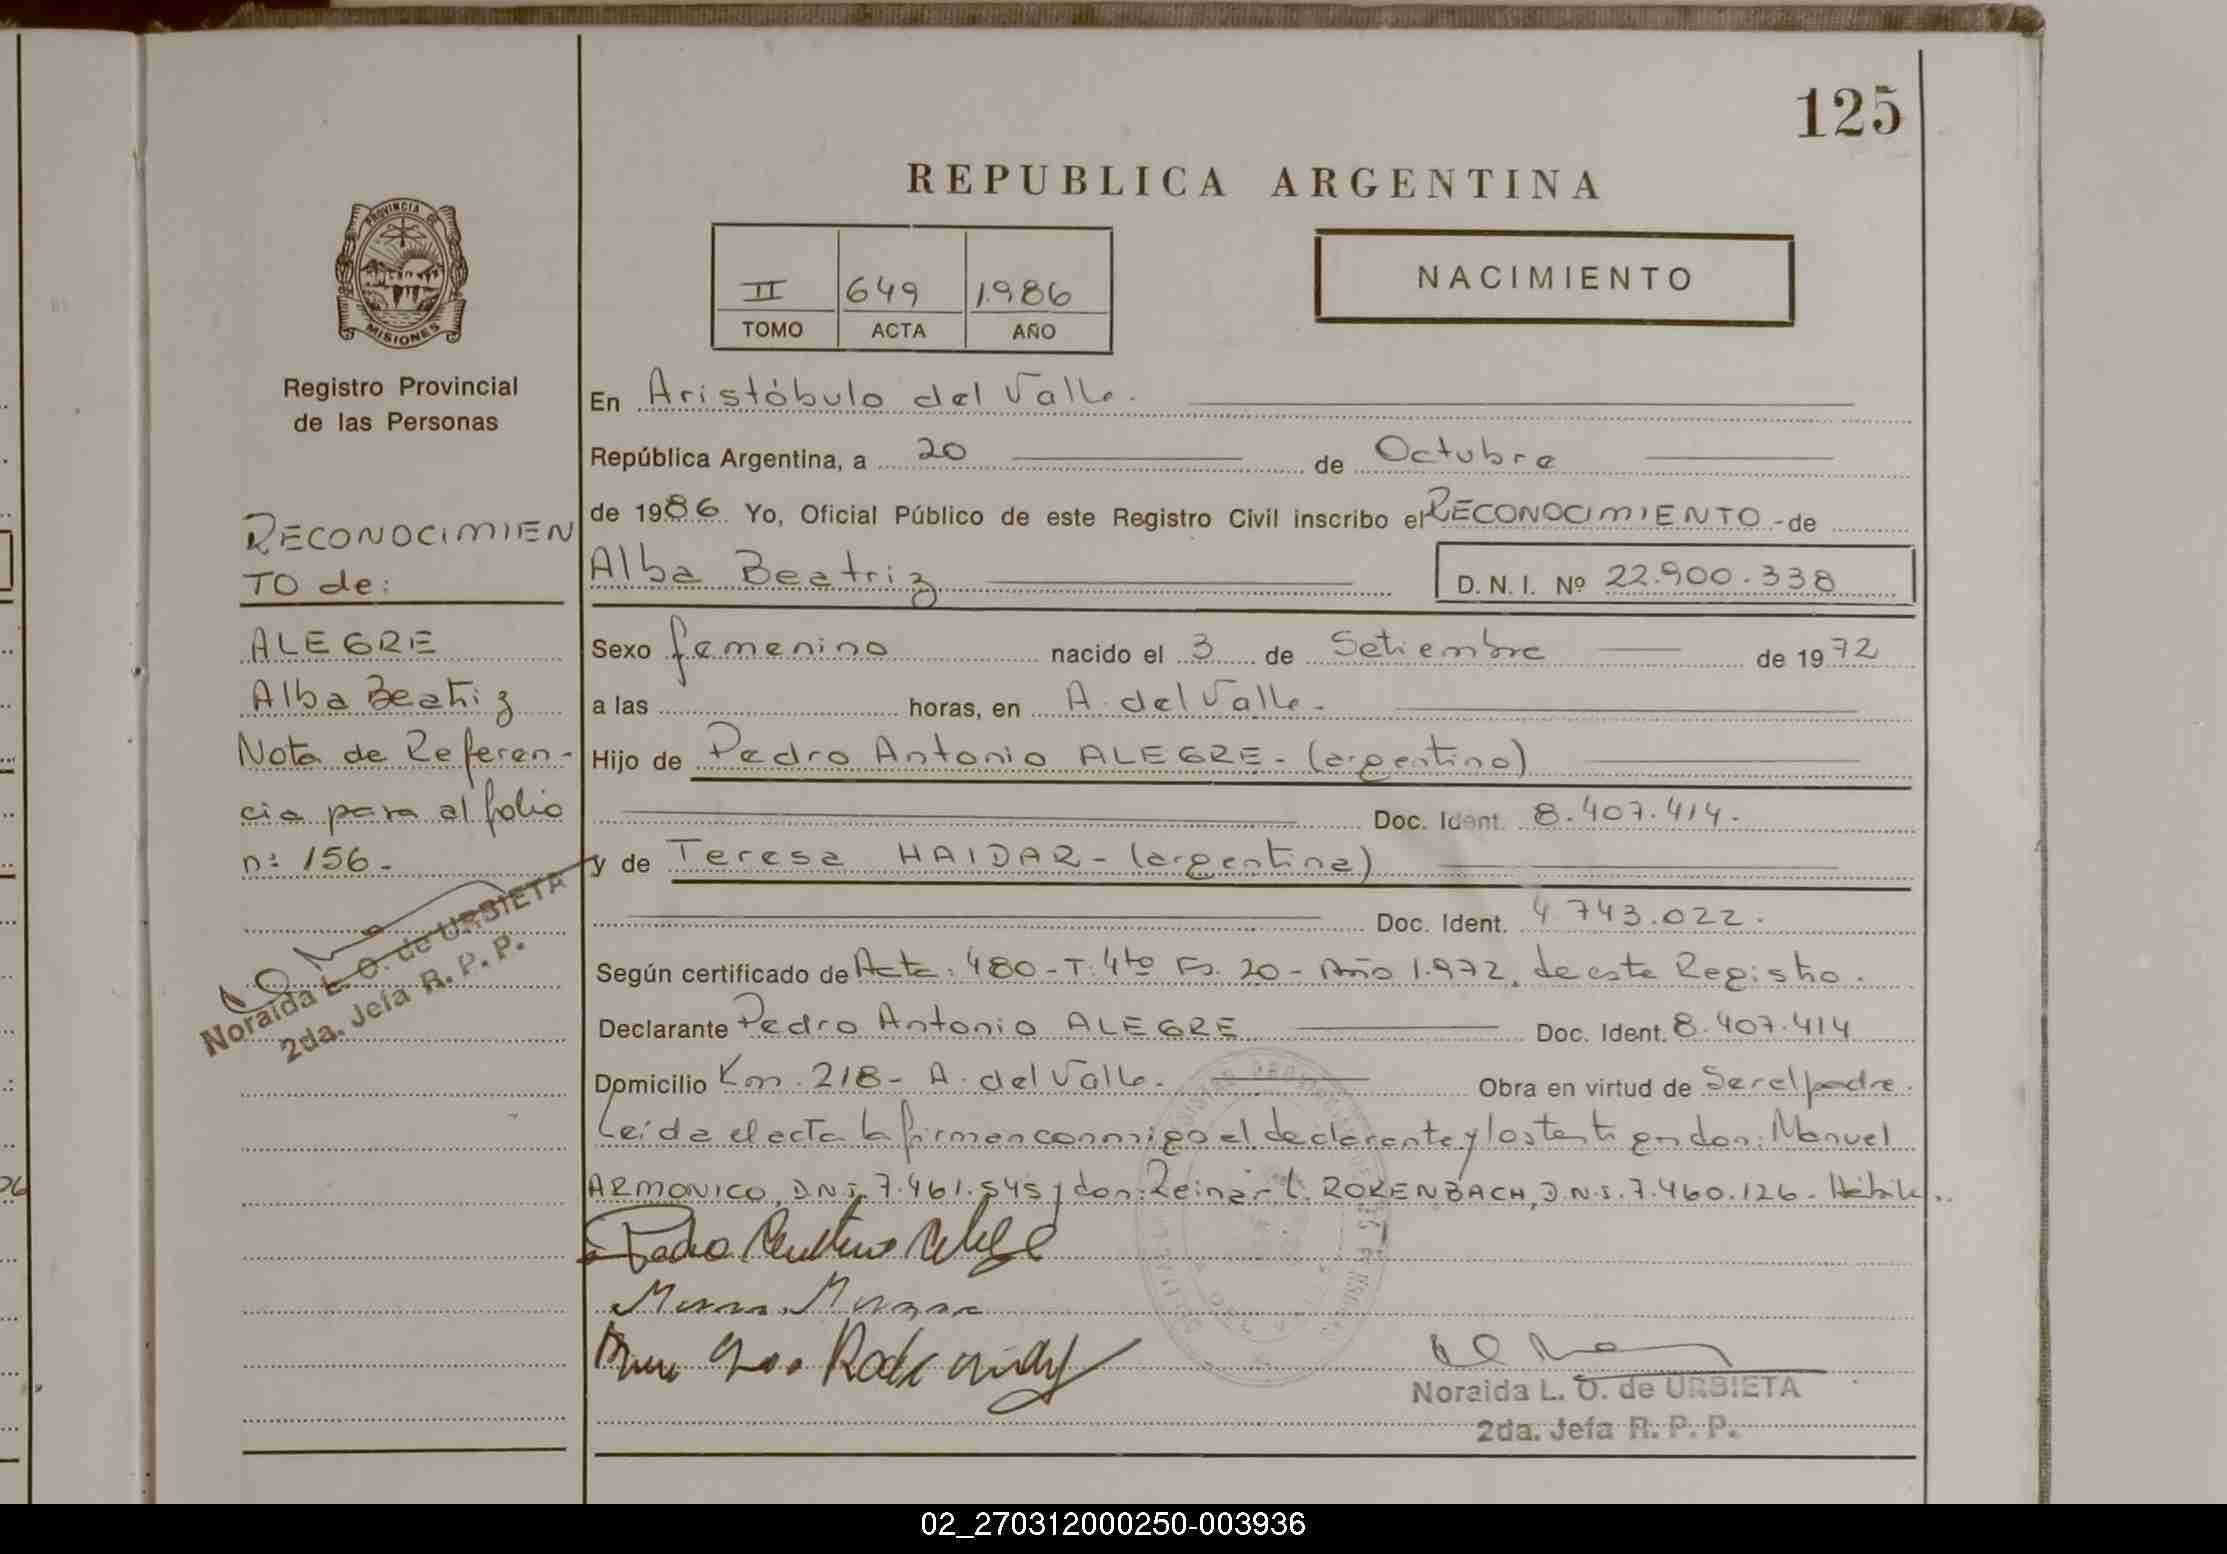 125
REPUBLICA ARGENTINA
PROVINCIA DE
MISIONES
Registro Provincial
de las Personas
II 649 1986
TOMO ACTA AÑO
NACIMIENTO
RECONOCIMIEN
TO de:
ALEGRE
Alba Beatriz
Nota de Referen-
cia para al folio
nº 156-
Noraida L. O. de URBIETA
2da. Jefa R. P. P.
En Aristóbulo del Valle.
República Argentina, a 20 de Octubre
de 1986 Yo, Oficial Público de este Registro Civil inscribo el RECONOCIMIENTO - de
Alba Beatriz D. N. I. Nº 22.900.338
Sexo femenino nacido el 3 de Setiembre de 1972
a las horas, en A. del Valle.
Hijo de Pedro Antonio ALEGRE - (argentino)
Doc. Ident. 8.407.414.
y de Teresa HAIDAR - (argentina)
Doc. Ident. 4 743.022.
Según certificado de Acta: 480 - T: 4to Fs. 20 - Año 1.972, de este Registro.
Declarante Pedro Antonio ALEGRE Doc. Ident. 8.407.414
Domicilio Km. 218 - A. del Valle. Obra en virtud de Ser el padre.
Leída el acta la firman conmigo el declarante y los testigos don: Manuel
ARMONICO, D.N.I. 7.461.545 y don: ROKENBACH, D.N.I. 7.460.126.
Noraida L. O. de URBIETA
2da. Jefa R. P. P.
02_270312000250-003936